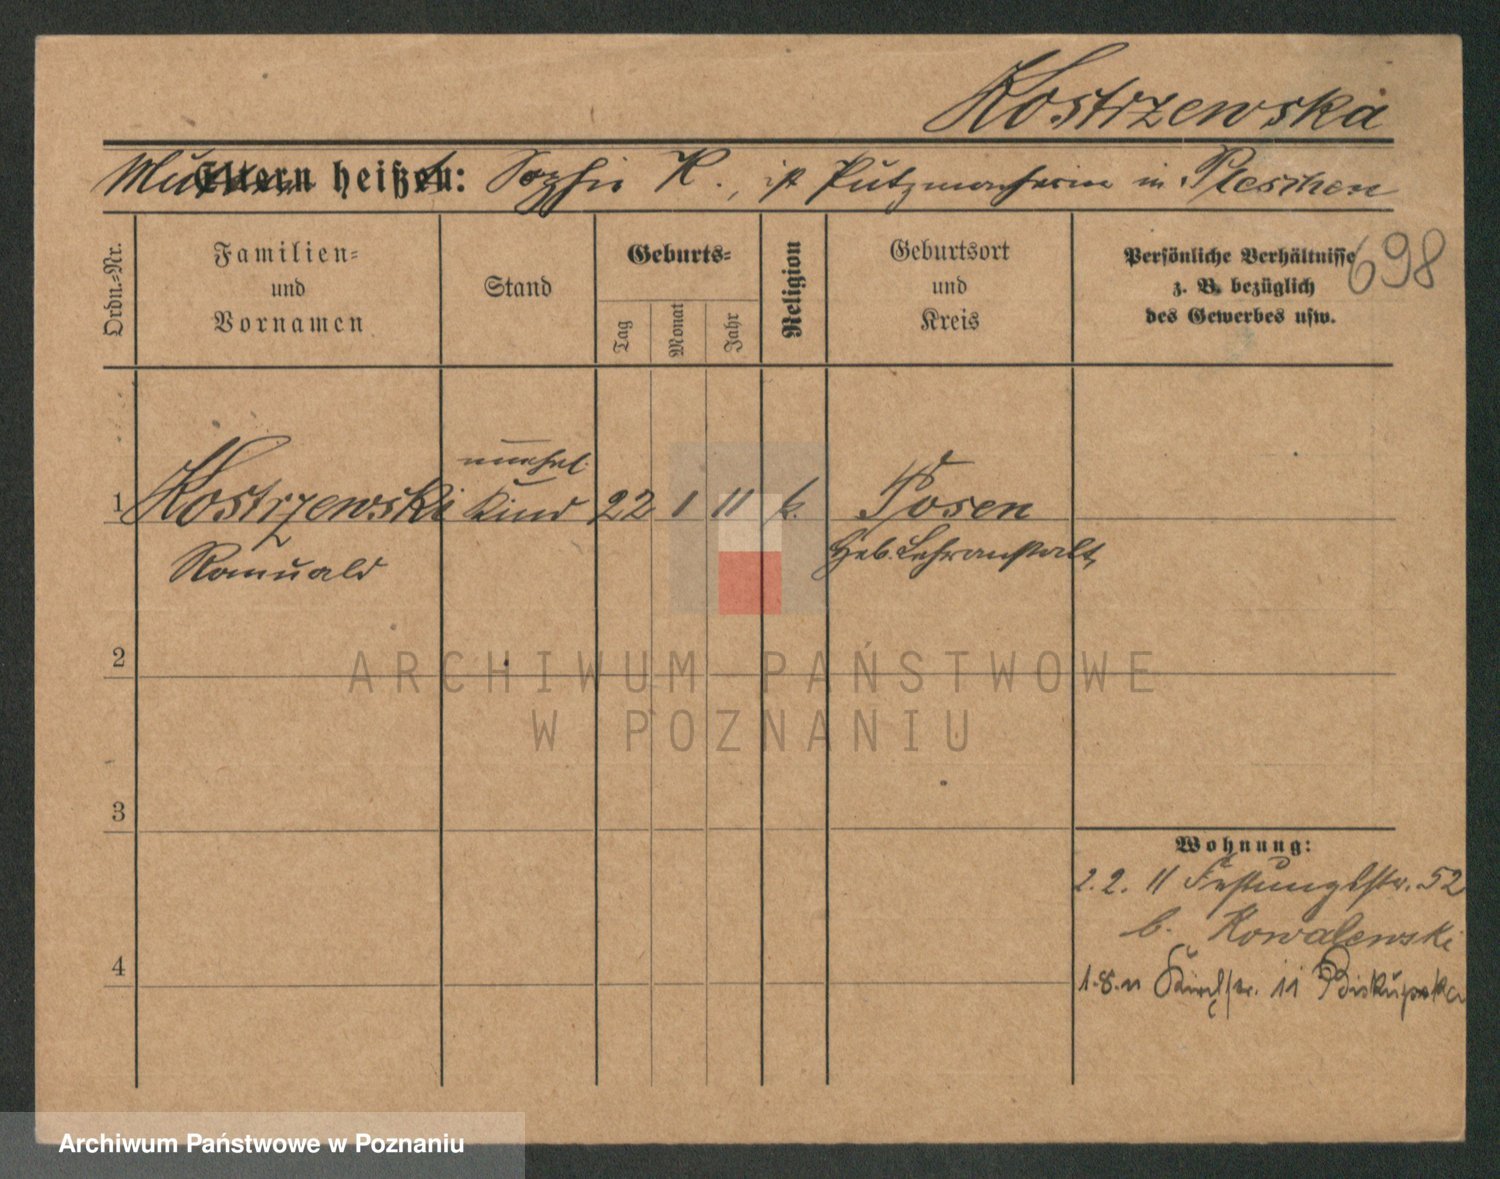 Kostrzewska
Mutter heißt: Sophie K., ist Putzmacherin in Pleschen
Ordn.=Nr.
Familien=
und
Vornamen
Stand
Geburts=
Tag
Monat
Jahr
Religion
Geburtsort
und
Kreis
Persönliche Verhältnisse
z. B. bezüglich
des Gewerbes usw.
698
unehel.
1 Kostrzewski Kind 22 1 11 k. Posen
Romuald Heb. Lehranstalt
2
ARCHIWUM PAŃSTWOWE
W POZNANIU
3
Wohnung:
2. 2. 11 Festungsstr. 52
b. Kowalewski
4
1. 8. 11 Kirchstr. 11 Biskupska
Archiwum Państwowe w Poznaniu